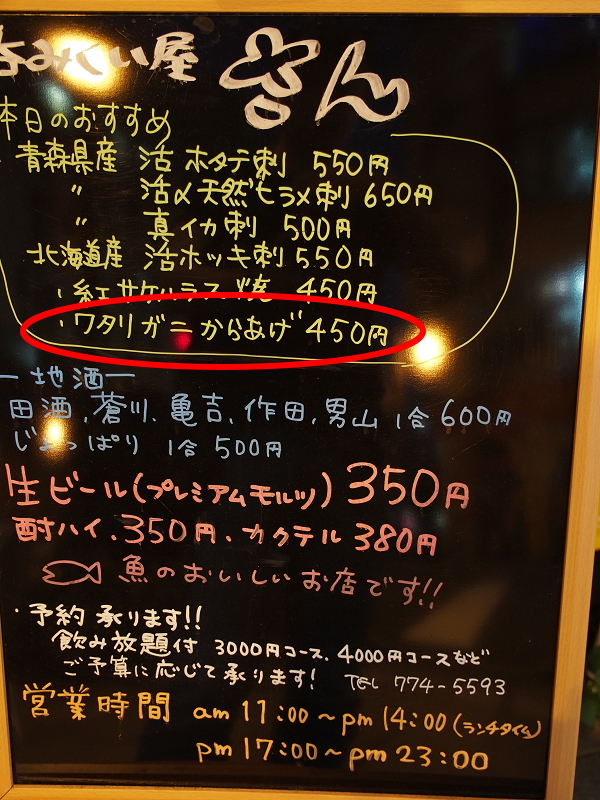 のみくい屋 さん
本日のおすすめ
青森県産 活ホタテ刺 550円
〃 活〆天然ヒラメ刺 650円
〃 真イカ刺 500円
北海道産 活ホッキ刺 550円
・紅サケハラス焼 450円
・ワタリガニからあげ 450円
ー地酒ー
田酒、蒼川、亀吉、作田、男山 1合 600円
じょっぱり 1合 500円
生ビール(プレミアムモルツ) 350円
酎ハイ・350円・カクテル 380円
魚のおいしいお店です!!
・予約 承ります!!
飲み放題付 3000円コース、4000円コースなど
ご予算に応じて承ります! TEL 774-5593
営業時間 am 11:00~pm 14:00(ランチタイム)
pm 17:00~pm 23:00